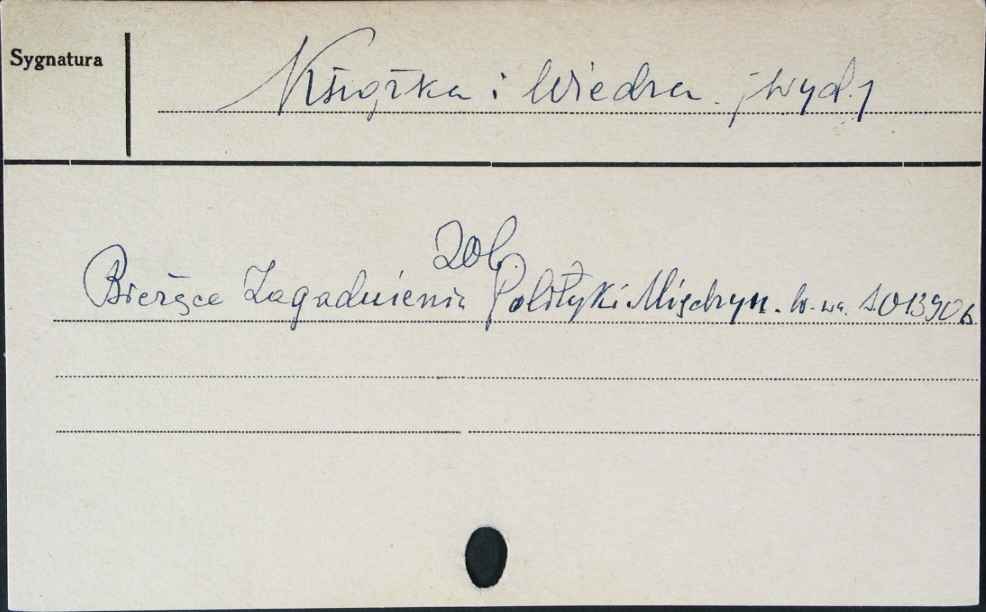 Sygnatura
Książka i Wiedza. /wyd./
zob.
Bieżące Zagadnienia Polityki Międzyn. W-wa.